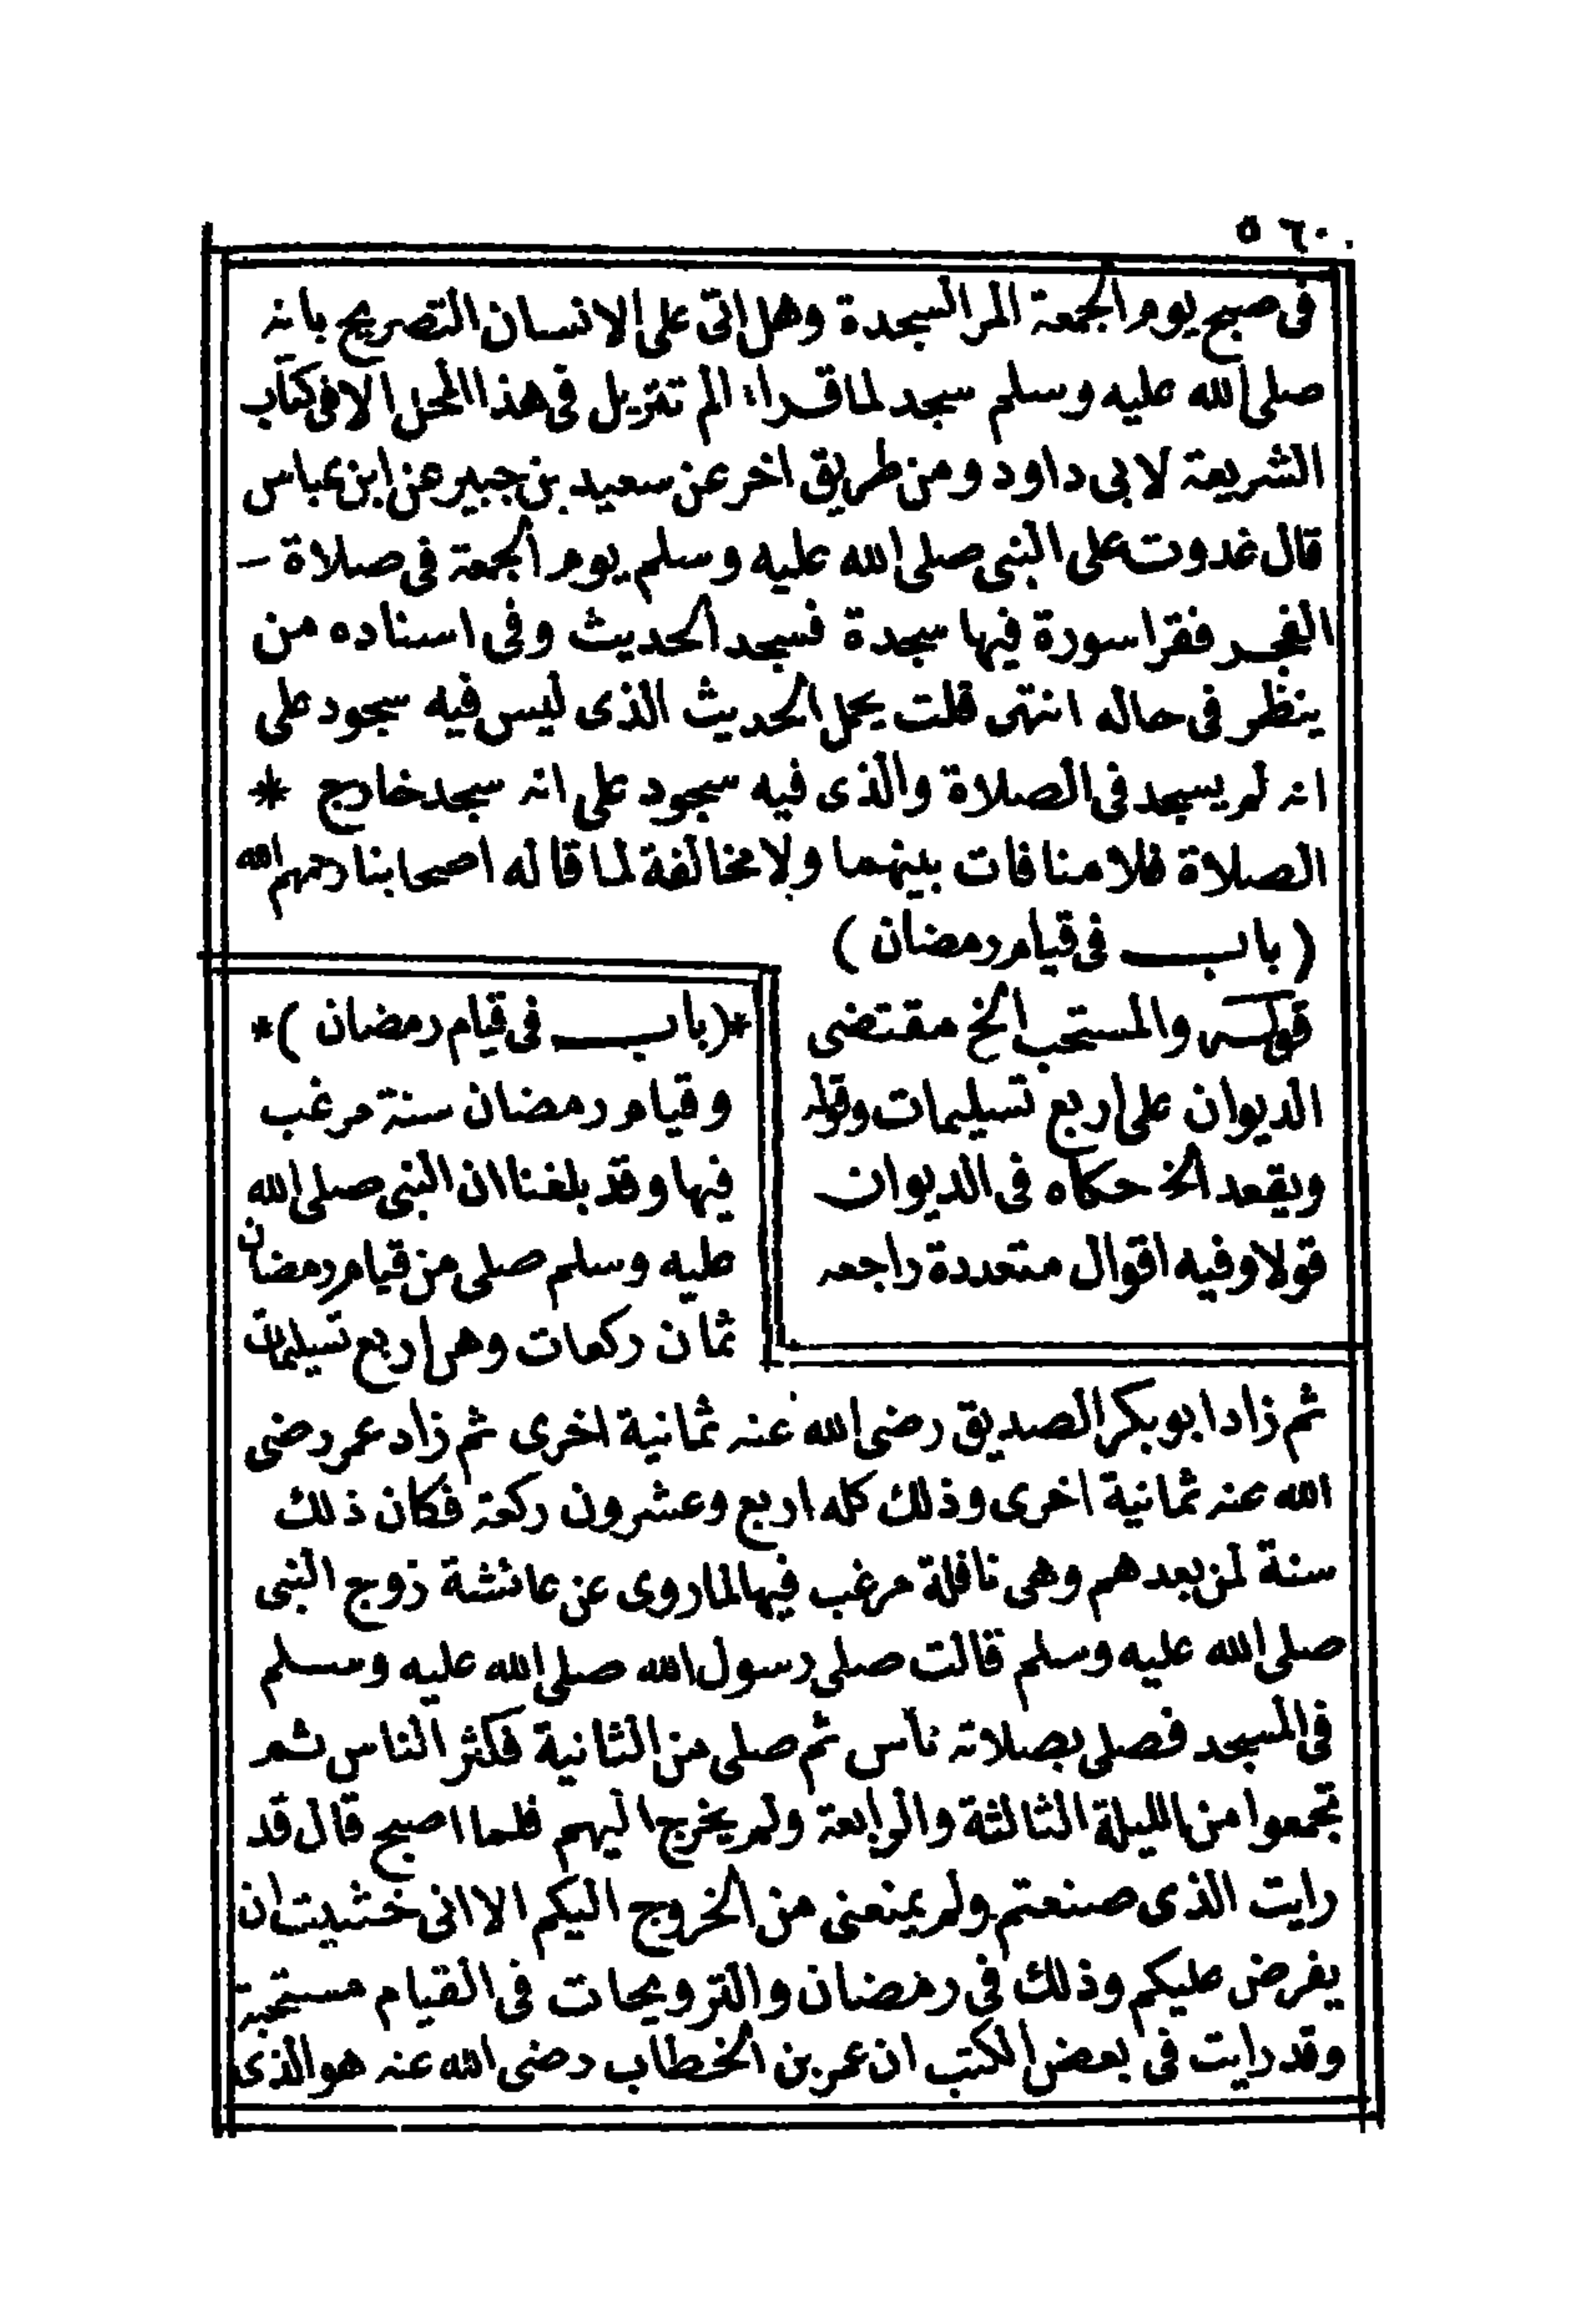 ٥٦٠
فى صبح يوم الجمعة الم السجدة وهل اتى على الانسان التصريح بانه
صلى الله عليه وسلم سجد لما قراء الم تنزيل فى هذا المحل الا فى كتاب
الشريعة لابى داود ومن طريق اخر عن سعيد بن جبير عن ابن عباس
قال غدوت على النبى صلى الله عليه وسلم يوم الجمعة فى صلاة -
الفجر فقرا سورة فيها سجدة فسجد الحديث وفى اسناده من
ينظر فى حاله انتهى قلت يحمل الحديث الذى ليس فيه سجود على
انه لم يسجد فى الصلاة والذى فيه سجود على انه سجد خارج *
الصلاة فلا منافات بينهما ولا مخالفة لما قاله اصحابنا رحمهم الله
( باب فى قيام رمضان )
قوله والمستحب الخ مقتضى
الديوان على اربع تسليمات وقوله
ويقعد الخ حكاه فى الديوان
قولا وفيه اقوال متعددة راجعه
*( باب فى قيام رمضان )*
وقيام رمضان سنة مرغب
فيها وقد بلغنا ان النبى صلى الله
عليه وسلم صلى من قيام رمضان
ثمان ركعات وهى اربع تسليمات
ثم زاد ابو بكر الصديق رضى الله عنه ثمانية اخرى ثم زاد عمر رضى
الله عنه ثمانية اخرى وذلك كله اربع وعشرون ركعة فكان ذلك
سنة لمن بعدهم وهى نافلة مرغب فيها لما روى عن عائشة زوج النبى
صلى الله عليه وسلم قالت صلى رسول الله صلى الله عليه وسلم
فى المسجد فصلى بصلاته ناس ثم صلى من الثانية فكثر الناس ثم
تجمعوا من الليلة الثالثة والرابعة ولم يخرج اليهم فلما اصبح قال قد
رايت الذى صنعتم ولم يمنعنى من الخروج اليكم الا انى خشيت ان
يفرض عليكم وذلك فى رمضان والترويحات فى القيام مستحبة
وقد رايت فى بعض الكتب ان عمر بن الخطاب رضى الله عنه هو الذى